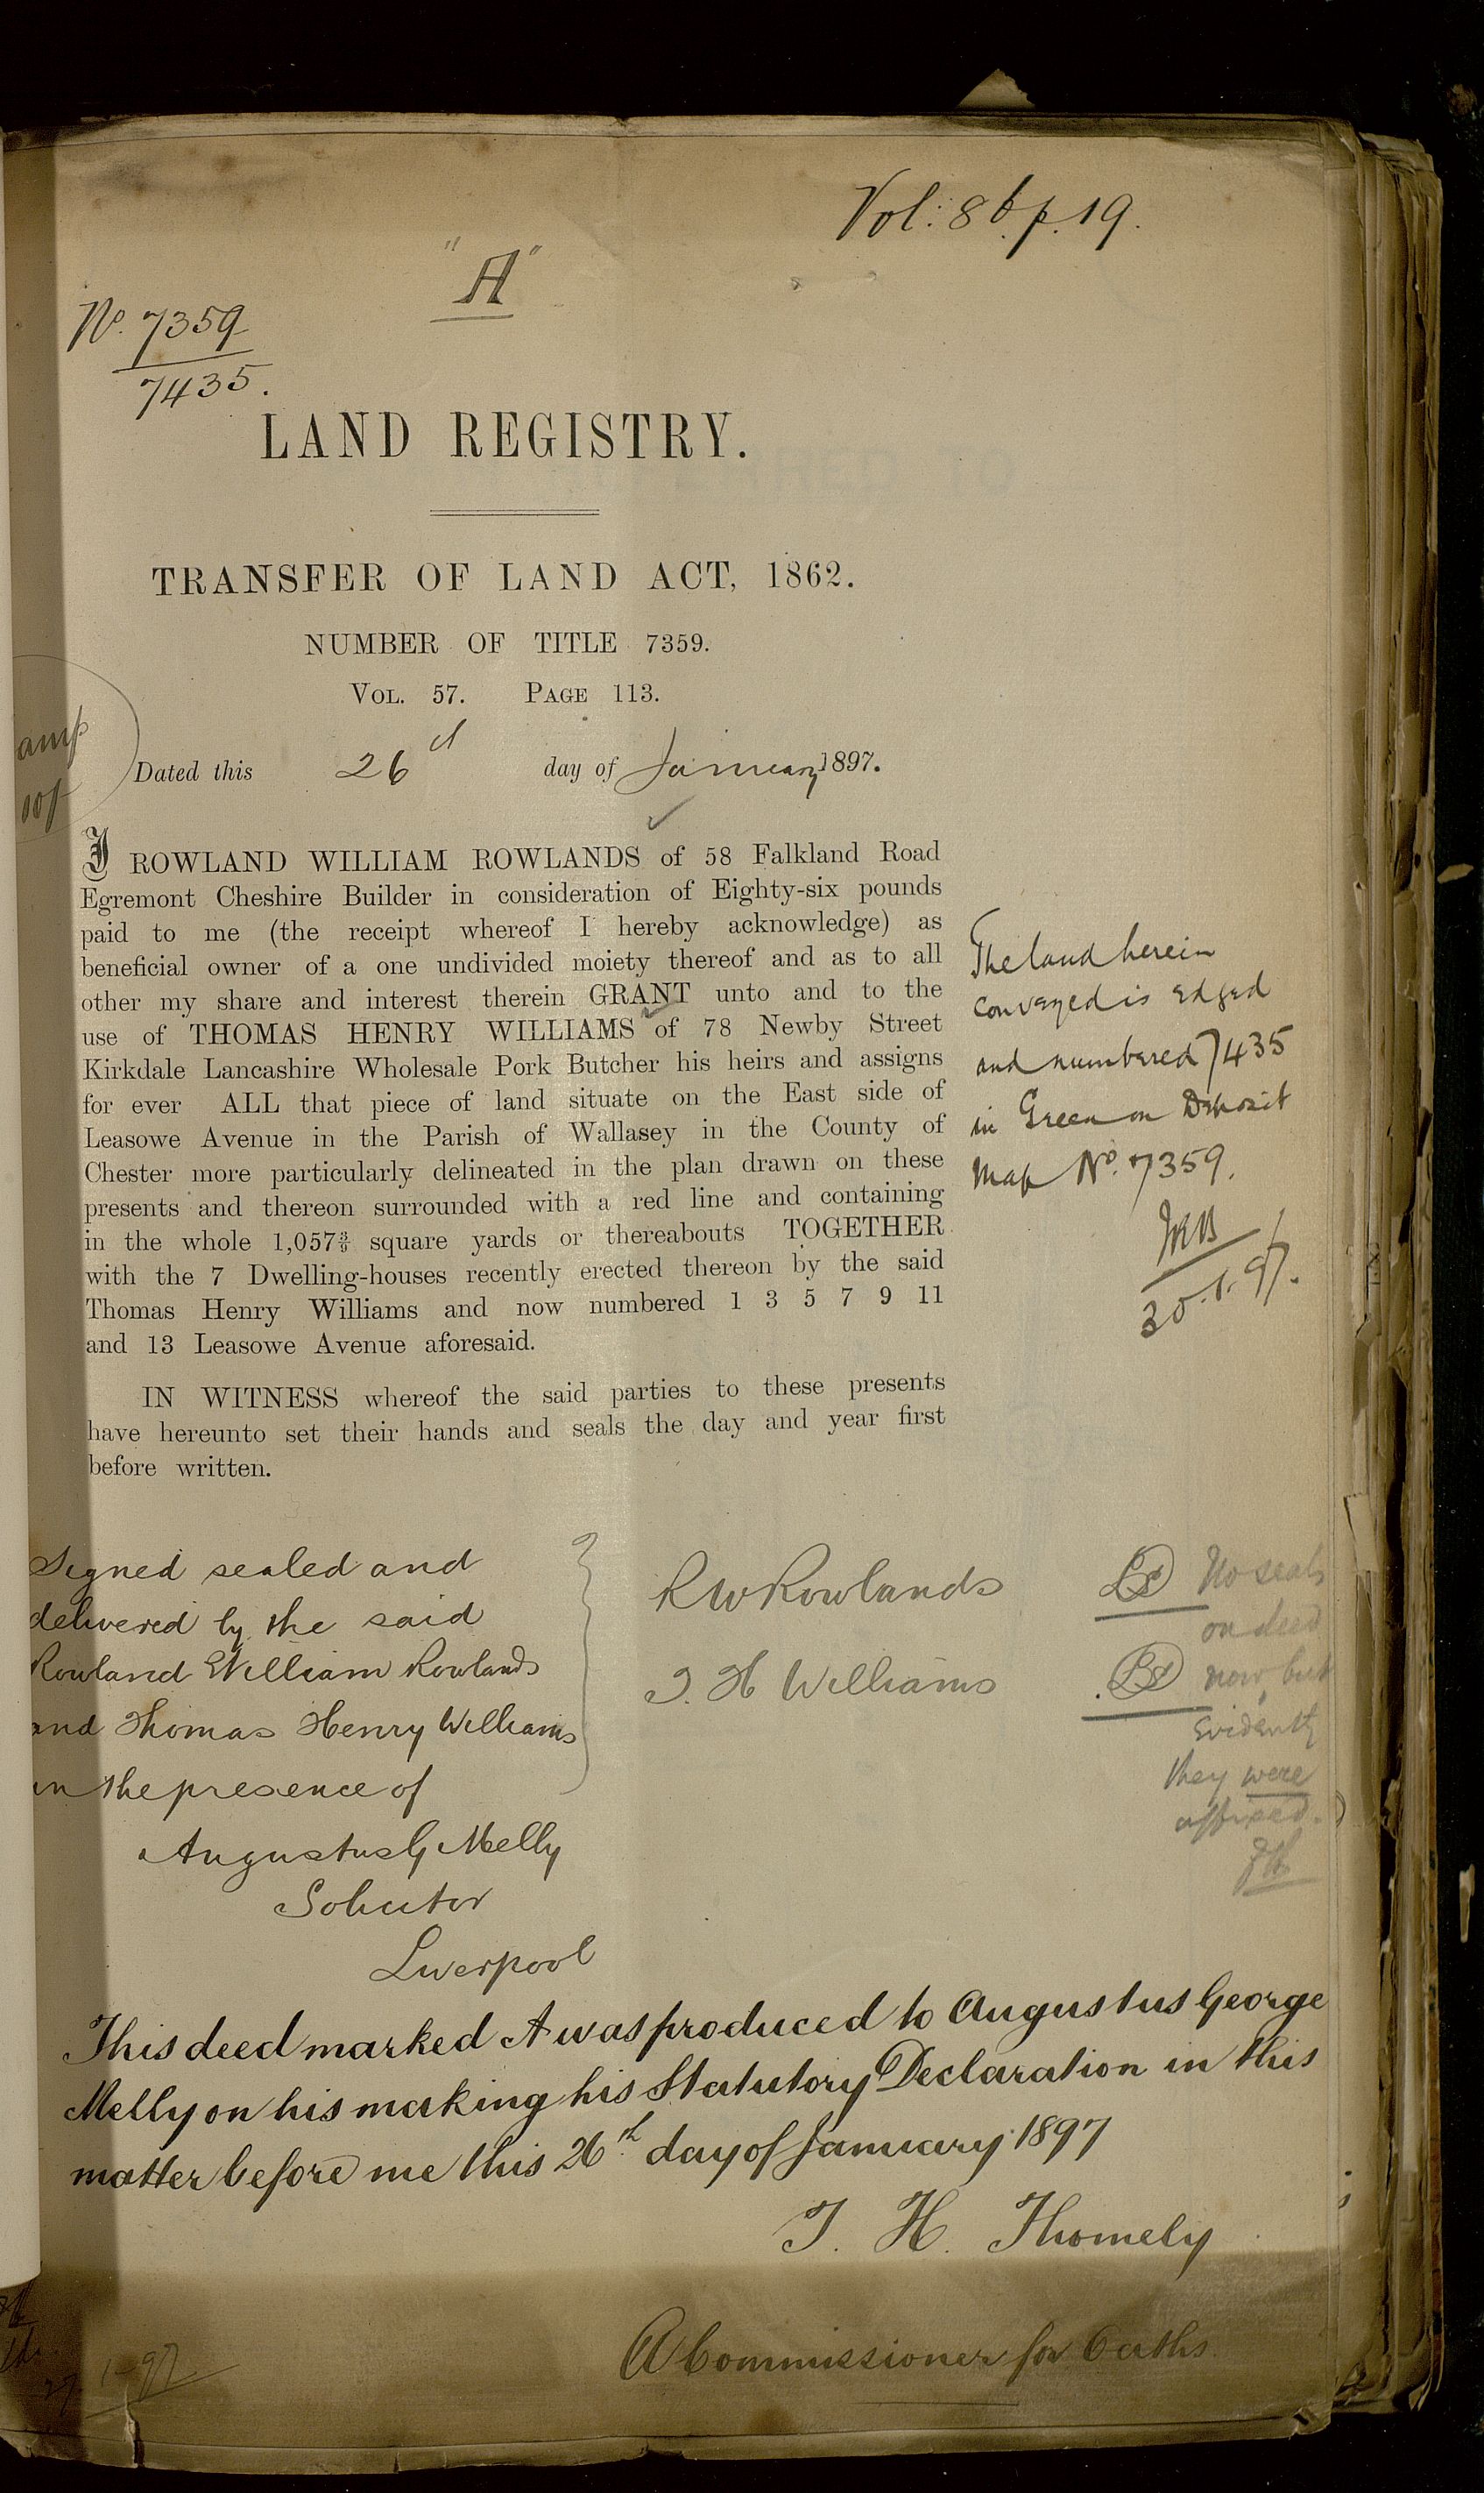 Vol: 8b. p. 19.
"A"
No. 7359
7435.
LAND REGISTRY.
TRANSFER OF LAND ACT, 1862.
NUMBER OF TITLE 7359.
VOL. 57. PAGE 113.
amp
10/-
Dated this 26th day of January 1897.
I ROWLAND WILLIAM ROWLANDS of 58 Falkland Road
Egremont Cheshire Builder in consideration of Eighty-six pounds
paid to me (the receipt whereof I hereby acknowledge) as
beneficial owner of a one undivided moiety thereof and as to all
other my share and interest therein GRANT unto and to the
use of THOMAS HENRY WILLIAMS of 78 Newby Street
Kirkdale Lancashire Wholesale Pork Butcher his heirs and assigns
for ever ALL that piece of land situate on the East side of
Leasowe Avenue in the Parish of Wallasey in the County of
Chester more particularly delineated in the plan drawn on these
presents and thereon surrounded with a red line and containing
in the whole 1,057 square yards or thereabouts TOGETHER
with the 7 Dwelling-houses recently erected thereon by the said
Thomas Henry Williams and now numbered 1 3 5 7 9 11
and 13 Leasowe Avenue aforesaid.
The land herein
conveyed is edged
and numbered 7435
in Green on Deposit
Map No. 7359.
30.1.97.
IN WITNESS whereof the said parties to these presents
have hereunto set their hands and seals the day and year first
before written.
Signed sealed and
delivered by the said
Rowland William Rowlands
and Thomas Henry Williams
in the presence of
Augustus G Melly
Solicitor
Liverpool
R W Rowlands
T. H Williams
LS
LS
No seals
on deed
now but
evidently
they were
affixed.
This deed marked A was produced to Augustus George
Melly on his making his Statutory Declaration in this
matter before me this 26th day of January 1897
T. H. Thornely
A Commissioner for Oaths
27 1-97